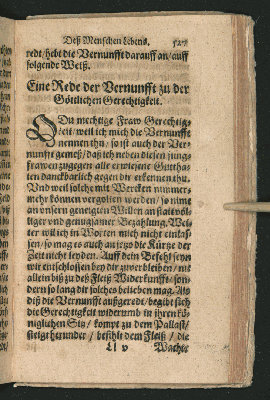 Deß Menschen Lebens. 527
redt/ hebt die Vernunfft darauff an/ auff
folgende Weiß.
Eine Rede der Vernunfft zu der
Göttlichen Gerechtigkeit.
O Du mechtige Fraw Gerechtig-
keit/ weil ich mich die Vernunfft
nennen thu/ so ist auch der Ver-
nunfft gemeß/ daß ich neben diesen jung-
frawen zugegen alle erwiesene Guttha-
ten danckbarlich gegen dir erkennen thu.
Vnd weil solche mit Wercken nimmer-
mehr können vergolten werden/ so nime
an vnsern geneigten Willen an statt völ-
liger vnd genugsamer Bezahlung. Wei-
ter wil ich in Worten mich nicht einlas-
sen/ so mag es auch an jezo die Kürtze der
Zeit nicht leyden. Auff dein Befehl seyn
wir entschlossen bey dir zu verbleiben/ nit
allein biß zu deß Fleiß Widerkunfft/ son-
dern so lang dir solches belieben mag. Als
diß die Vernunfft außgeredt/ begibt sich
die Gerechtigkeit widerumb in ihren kö-
niglichen Siz/ kompt zu dem Pallast/
steigt herunder/ befihlt dem Fleiß/ die
Ll v Wachte